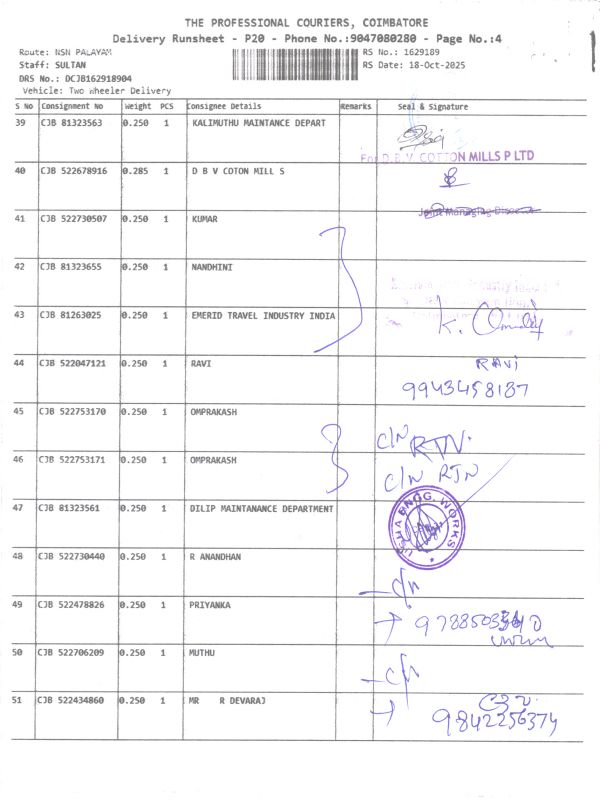 THE PROFESSIONAL COURIERS, COIMBATORE
Delivery Runsheet - P20 - Phone No.:9047080280 - Page No.:4
Route: NSN PALAYAM
RS No.: 1629189
Staff: SULTAN
RS Date: 18-Oct-2025
DRS No.: DCJB162918904
Vehicle: Two Wheeler Delivery
S No Consignment No Weight PCS Consignee Details Remarks Seal & Signature
39 CJB 81323563 0.250 1 KALIMUTHU MAINTANCE DEPART
For D.B.V COTTON MILLS P LTD
40 CJB 522678916 0.285 1 D B V COTON MILL S
Joint Managing Director
41 CJB 522730507 0.250 1 KUMAR
42 CJB 81323655 0.250 1 NANDHINI
43 CJB 81263025 0.250 1 EMERID TRAVEL INDUSTRY INDIA
K.
44 CJB 522047121 0.250 1 RAVI RAVI
9943458187
45 CJB 522753170 0.250 1 OMPRAKASH C/N RTN.
46 CJB 522753171 0.250 1 OMPRAKASH C/N RTN
47 CJB 81323561 0.250 1 DILIP MAINTANANCE DEPARTMENT
USHA ENGG. WORKS
48 CJB 522730440 0.250 1 R ANANDHAN
c/n
49 CJB 522478826 0.250 1 PRIYANKA
50 CJB 522706209 0.250 1 MUTHU
c/n
51 CJB 522434860 0.250 1 MR R DEVARAJ
9842256374